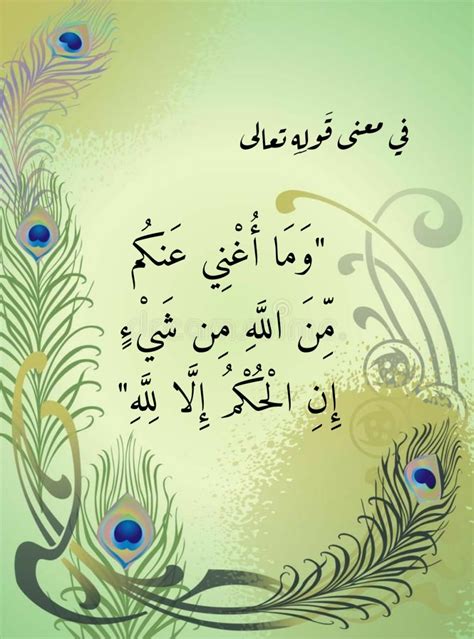 في معنى قَولِه تعالى
"وَمَا أُغْنِي عَنكُم
مِّنَ اللَّهِ مِن شَيْءٍ
إِنِ الْحُكْمُ إِلَّا لِلَّهِ"